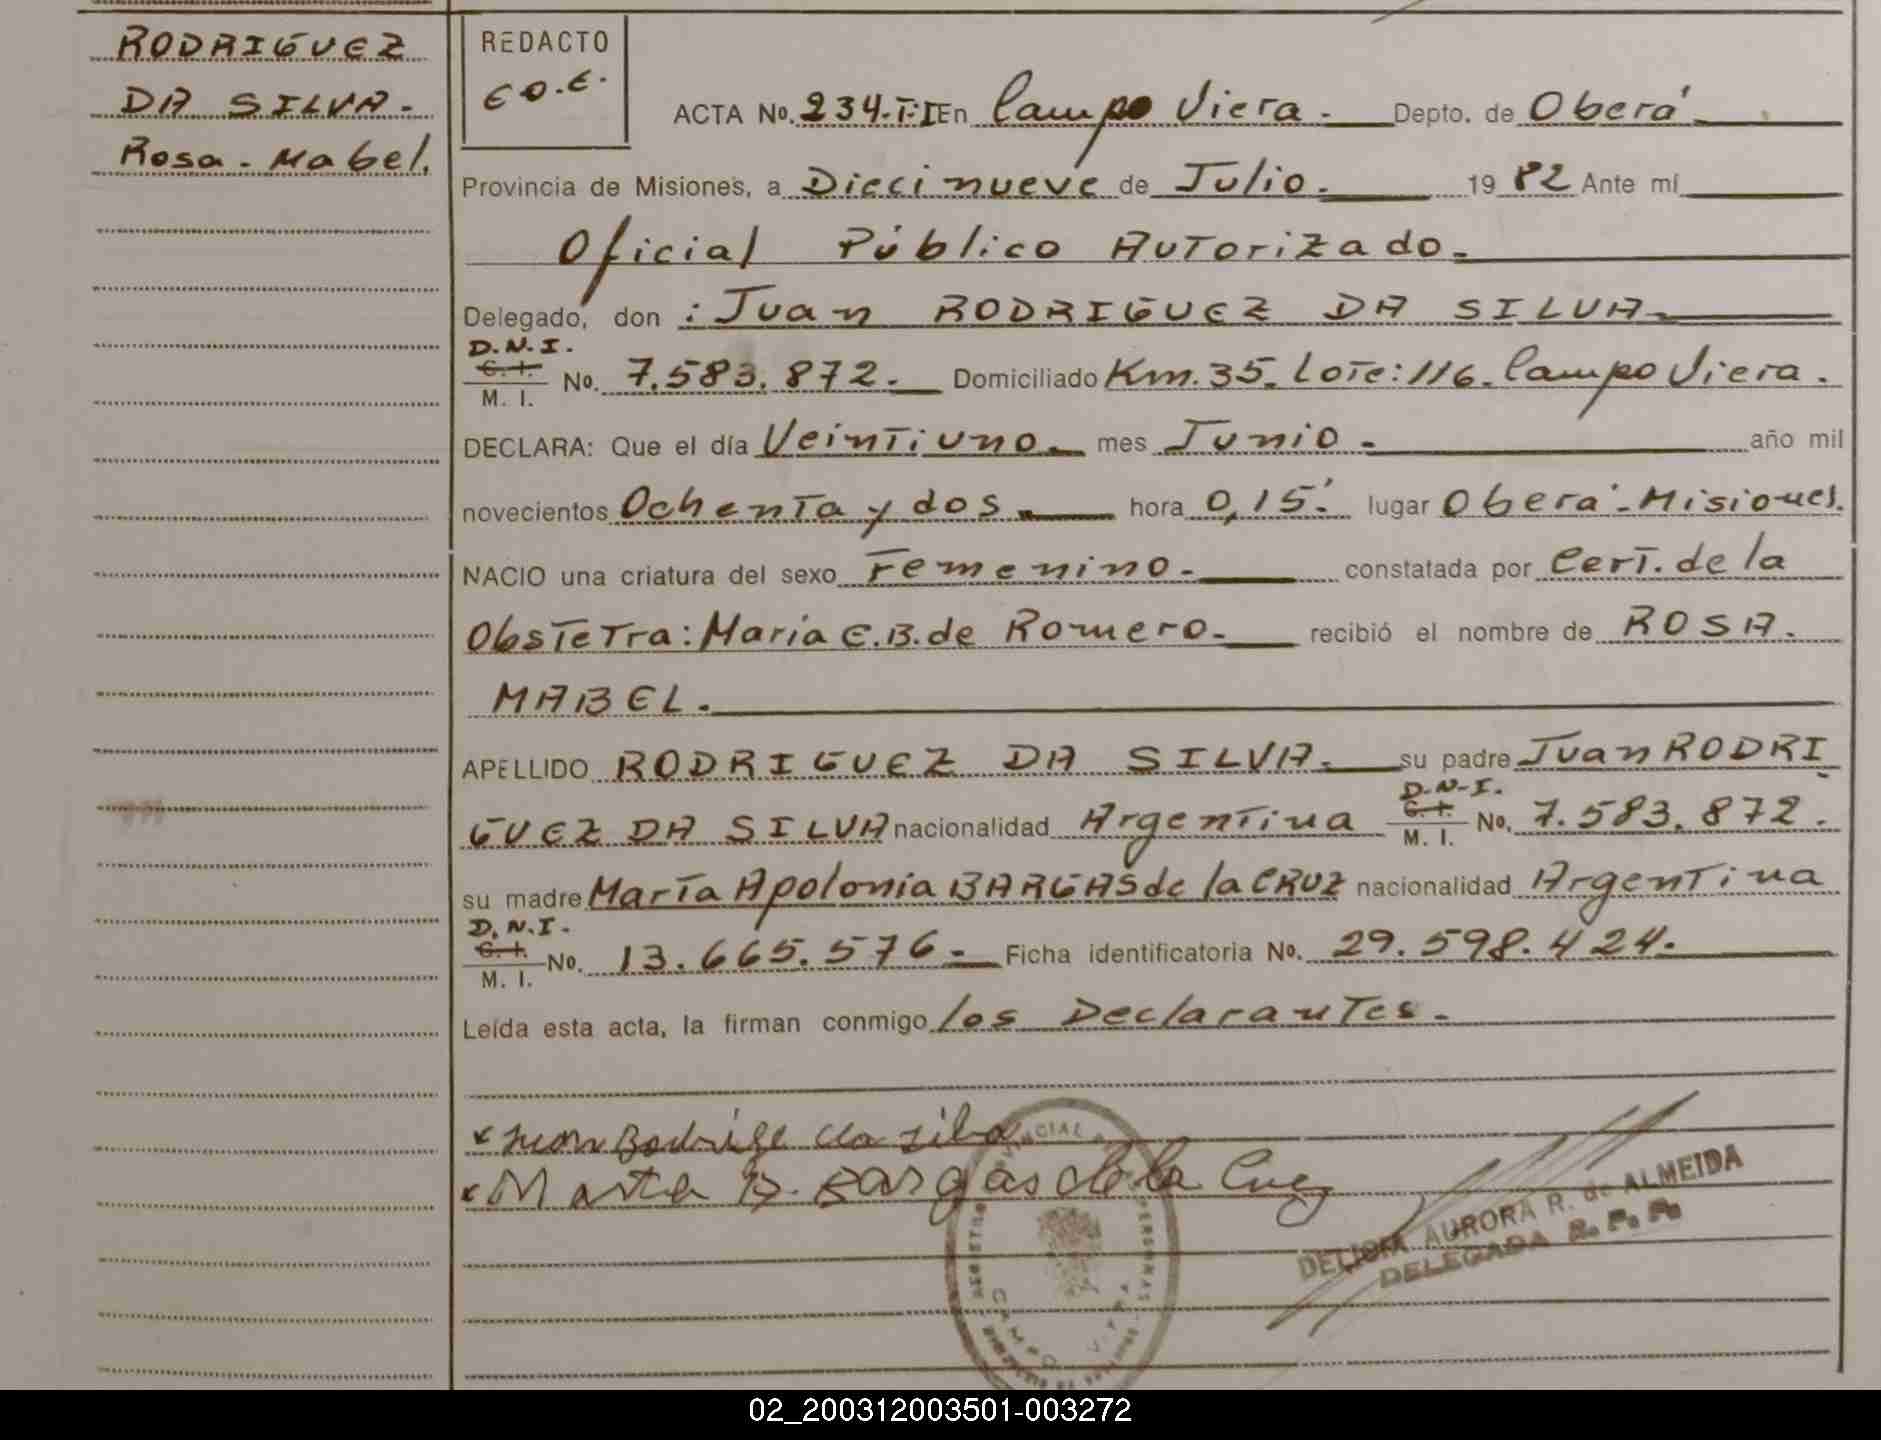 RODRIGUEZ
DA SILVA.
Rosa - Mabel.
REDACTO
E.O.E.
ACTA No. 234.T:I En Campo Viera. Depto. de Oberá
Provincia de Misiones, a Diecinueve de Julio. 19 82 Ante mí
Oficial Público Autorizado.
Delegado, don : Juan RODRIGUEZ DA SILVA
D.N.I.
C. I.
M. I. No. 7.583.872. Domiciliado Km. 35. Lote: 116. Campo Viera.
DECLARA: Que el día Veintiuno. mes Junio. año mil
novecientos Ochenta y dos hora 0,15' lugar Oberá - Misiones.
NACIO una criatura del sexo Femenino. constatada por Cert. de la
Obstetra: María E.B. de Romero. recibió el nombre de ROSA.
MABEL.
APELLIDO RODRIGUEZ DA SILVA. su padre Juan RODRI
GUEZ DA SILVA nacionalidad Argentina D.N.I. C. I. M. I. No. 7.583.872.
su madre María Apolonia BARGAS de la CRUZ nacionalidad Argentina
D.N.I.
C. I.
M. I. No. 13.665.576. Ficha identificatoria No. 29.598.424.
Leída esta acta, la firman conmigo los Declarantes.
da silva
Bargas de la Cruz
CAMPO
DELICIA AURORA R. de ALMEIDA
DELEGADA R. P. P.
02_200312003501-003272